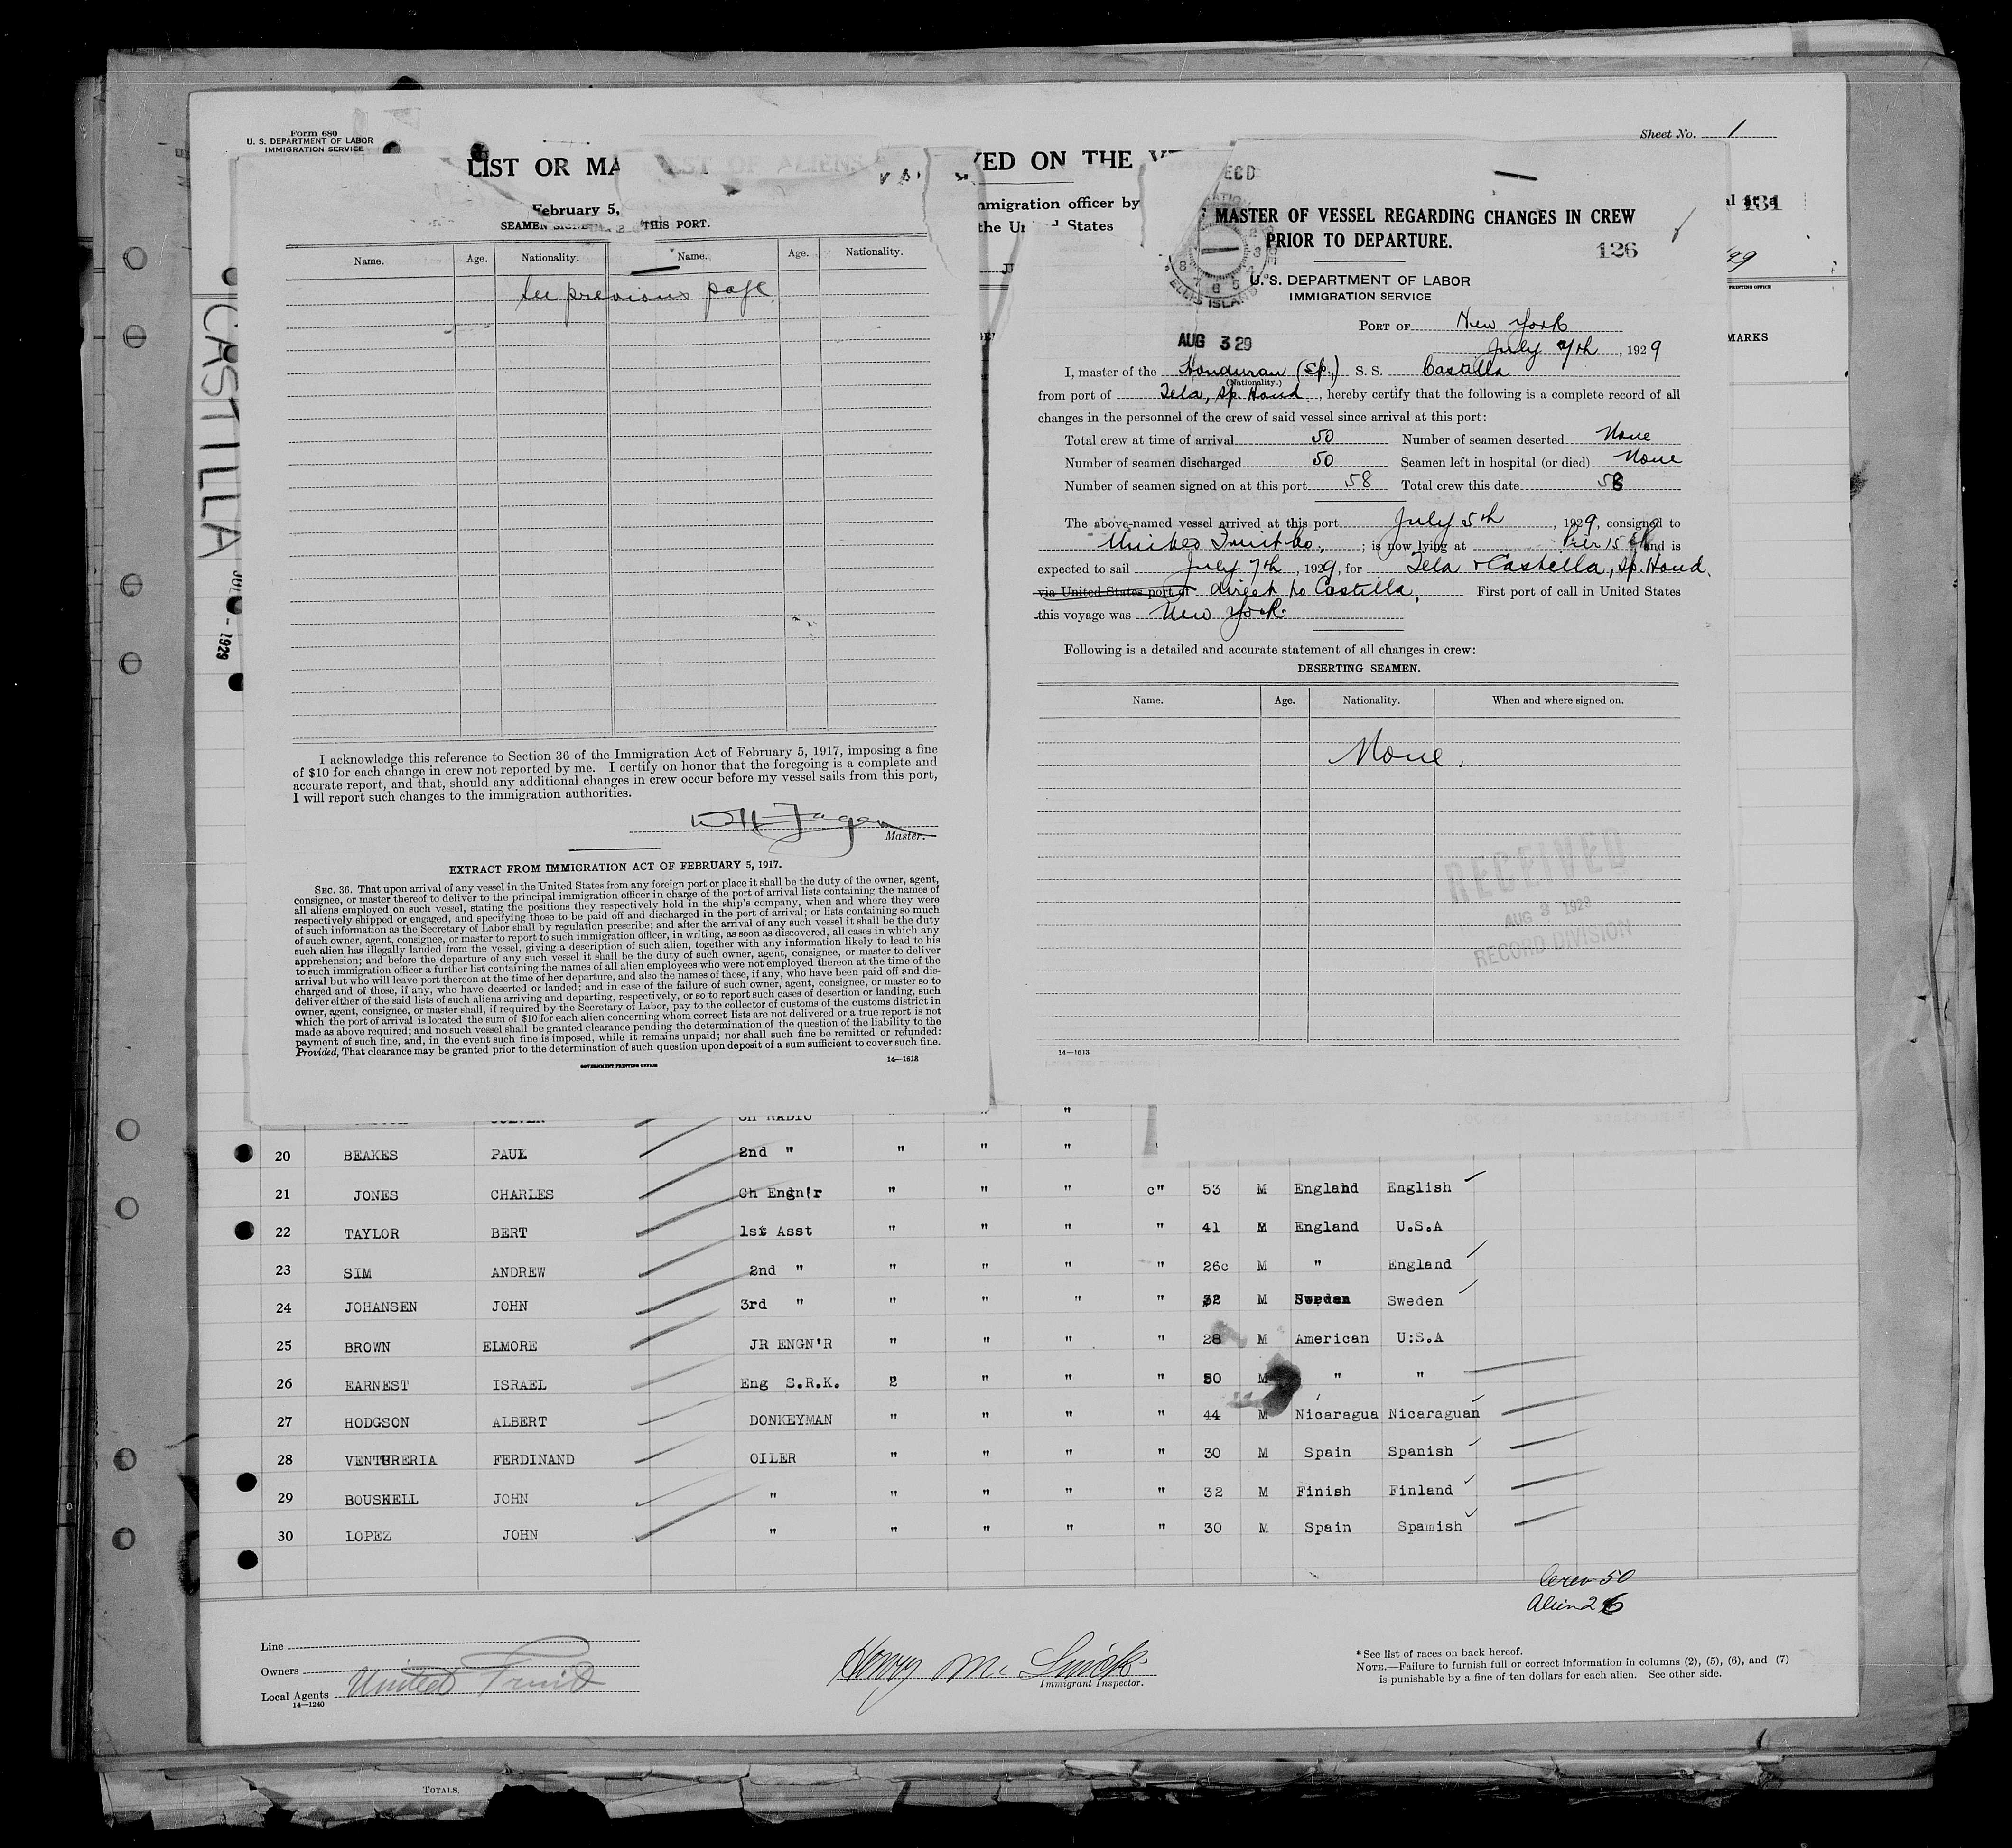 Form 680
U. S. DEPARTMENT OF LABOR
IMMIGRATION SERVICE
Sheet No. 1
LIST OR MA
LIST OF ALIENS
YED ON THE
February 5,
mmigration officer by
the Un States
al at a
131
29
PRINTING OFFICE
MARKS
CASTILLA
1929
SEAMEN THIS PORT.
Name. Age. Nationality. Name. Age. Nationality.
See previous page
I acknowledge this reference to Section 36 of the Immigration Act of February 5, 1917, imposing a fine
of $10 for each change in crew not reported by me. I certify on honor that the foregoing is a complete and
accurate report, and that, should any additional changes in crew occur before my vessel sails from this port,
I will report such changes to the immigration authorities.
Master.
EXTRACT FROM IMMIGRATION ACT OF FEBRUARY 5, 1917.
SEC. 36. That upon arrival of any vessel in the United States from any foreign port or place it shall be the duty of the owner, agent,
consignee, or master thereof to deliver to the principal immigration officer in charge of the port of arrival lists containing the names of
all aliens employed on such vessel, stating the positions they respectively hold in the ship's company, when and where they were
respectively shipped or engaged, and specifying those to be paid off and discharged in the port of arrival; or lists containing so much
of such information as the Secretary of Labor shall by regulation prescribe; and after the arrival of any such vessel it shall be the duty
of such owner, agent, consignee, or master to report to such immigration officer, in writing, as soon as discovered, all cases in which any
such alien has illegally landed from the vessel, giving a description of such alien, together with any information likely to lead to his
apprehension; and before the departure of any such vessel it shall be the duty of such owner, agent, consignee, or master to deliver
to such immigration officer a further list containing the names of all alien employees who were not employed thereon at the time of the
arrival but who will leave port thereon at the time of her departure, and also the names of those, if any, who have been paid off and dis-
charged and of those, if any, who have deserted or landed; and in case of the failure of such owner, agent, consignee, or master so to
deliver either of the said lists of such aliens arriving and departing, respectively, or so to report such cases of desertion or landing, such
owner, agent, consignee, or master shall, if required by the Secretary of Labor, pay to the collector of customs of the customs district in
which the port of arrival is located the sum of $10 for each alien concerning whom correct lists are not delivered or a true report is not
made as above required; and no such vessel shall be granted clearance pending the determination of the question of the liability to the
payment of such fine, and, in the event such fine is imposed, while it remains unpaid; nor shall such fine be remitted or refunded:
Provided, That clearance may be granted prior to the determination of such question upon deposit of a sum sufficient to cover such fine.
14—1613
GOVERNMENT PRINTING OFFICE
ECD
ELLIS ISLAND
AUG 3 29
MASTER OF VESSEL REGARDING CHANGES IN CREW
PRIOR TO DEPARTURE.
126
U. S. DEPARTMENT OF LABOR
IMMIGRATION SERVICE
PORT OF New York
July 7th, 1929
I, master of the Honduran (Sp.) S. S. Castilla
(Nationality.)
from port of Tela, Sp. Hond., hereby certify that the following is a complete record of all
changes in the personnel of the crew of said vessel since arrival at this port:
Total crew at time of arrival 50 Number of seamen deserted None
Number of seamen discharged 50 Seamen left in hospital (or died) None
Number of seamen signed on at this port 58 Total crew this date 58
The above-named vessel arrived at this port July 5th, 1929, consigned to
United Fruit Co.; is now lying at Pier 15 ER and is
expected to sail July 7th, 1929, for Tela & Castella, Sp. Hond.
via United States port of direct to Castilla, First port of call in United States
this voyage was New York.
Following is a detailed and accurate statement of all changes in crew:
DESERTING SEAMEN.
Name. Age. Nationality. When and where signed on.
None.
RECEIVED
AUG 3 1929
RECORD DIVISION
14—1613
CH RADIO " " "
20 BEAKES PAUL 2nd " " " "
21 JONES CHARLES Ch Engn'r " " " c" 53 M England English
22 TAYLOR BERT 1st Asst " " " " 41 M England U.S.A
23 SIM ANDREW 2nd " " " " " 26c M " England
24 JOHANSEN JOHN 3rd " " " " " 32 M Sweden Sweden
25 BROWN ELMORE JR ENGN'R " " " " 28 M American U:S.A
26 EARNEST ISRAEL Eng S.R.K. 2 " " " 50 M " "
27 HODGSON ALBERT DONKEYMAN " " " " 44 M Nicaragua Nicaraguan
28 VENTURERIA FERDINAND OILER " " " " 30 M Spain Spanish
29 BOUSKELL JOHN " " " " " 32 M Finish Finland
30 LOPEZ JOHN " " " " " 30 M Spain Spamish
Crew 50
Alien 26
Line
Owners
Local Agents United Fruit
14—1240
Immigrant Inspector.
* See list of races on back hereof.
NOTE.—Failure to furnish full or correct information in columns (2), (5), (6), and (7)
is punishable by a fine of ten dollars for each alien. See other side.
TOTALS.